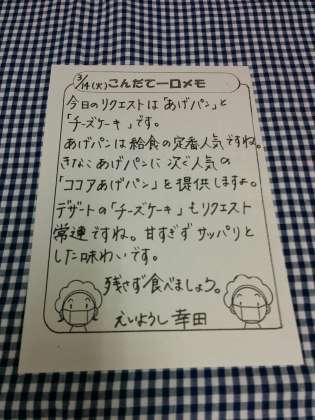 3/14(火)こんだて一口メモ
今日のリクエストは「あげパン」と
「チーズケーキ」です。
あげパンは給食の定番人気ですね。
きなこあげパンに次ぐ人気の
「ココアあげパン」を提供しますよ。
デザートの「チーズケーキ」もリクエスト
常連ですね。甘すぎずサッパリと
した味わいです。
残さず食べましょう。
えいようし 幸田